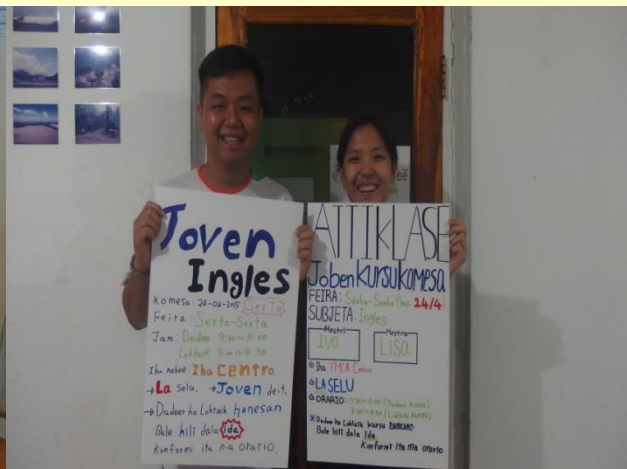 Joven
Ingles
Komesa: 24-04-2015 Sexta
Feira: Sexta-Sexta
Jam: Dadeer 9:30~11:00
Lokraik 3:00~4:30
Iha nebee: Iha CENTRO.
→La selu. →Joven deit.
→Dadeer ho Lokraik hanesan
Bele hili dala Ida
Konformi ita nia orario.
ATTIKLASE
Joben Kursu Komesa
FEIRA: Sexta-Sexta 24/4
SUBJETA: Ingles
Mestri
IVO
Mestra
LISA
Iha YMCA Centro
LA SELU
ORARIO: 9:30~11:00 (Dadeer kursu)
3:00~4:30 (Lokraik kursu)
Dadeer ho Lokraik kursu hanesan.
Bele hili dala Ida
Konformi Ita Nia orario